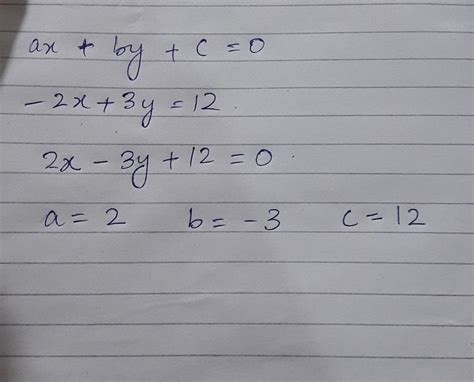 ax + by + c = 0
-2x + 3y = 12.
2x - 3y + 12 = 0.
a = 2 b = -3 c = 12